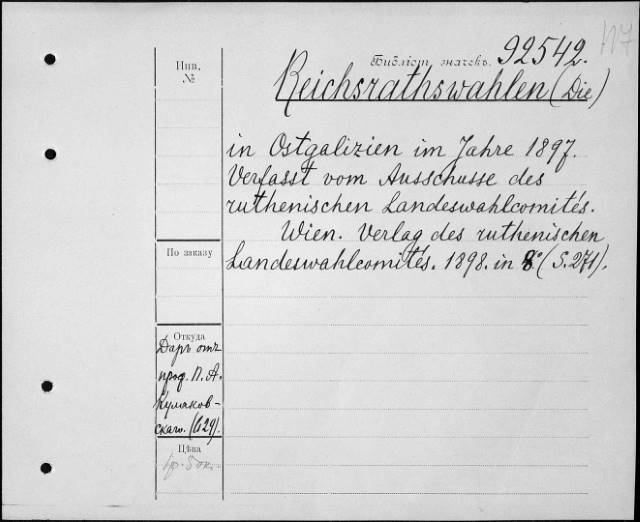 Библіот. значекъ. 92542.
Инв. №
Reichsrathswahlen (Die)
in Ostgalizien im Jahre 1897.
Verfasst vom Ausschusse des
ruthenischen Landeswahlcomités.
Wien. Verlag des ruthenischen
Landeswahlcomités. 1898. in 8° (S. 271).
По заказу
Откуда
Даръ отъ
проф. П. А.
Кулаков-
скаго. (629).
Цѣна